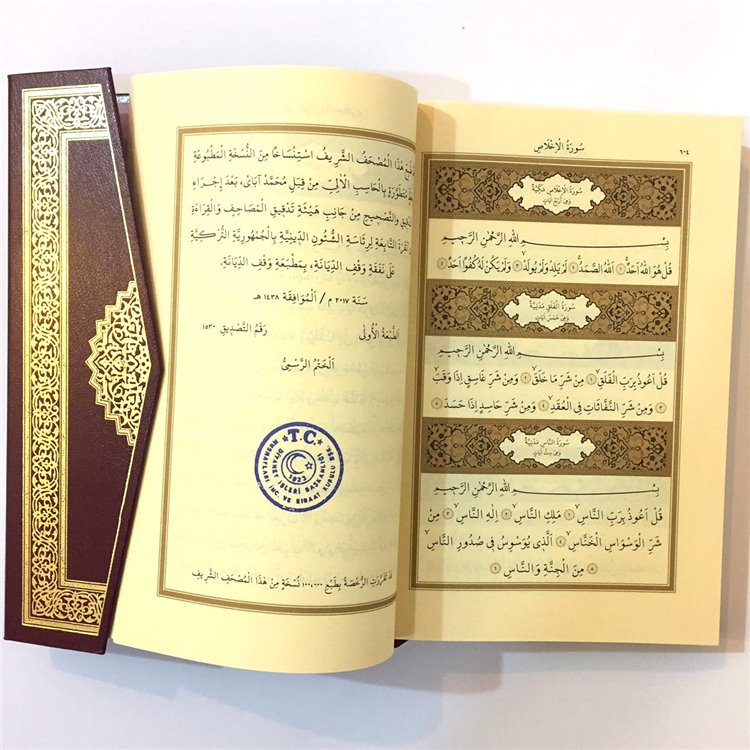 سُورَةُ الْإِخْلَاصِ
٦٠٤
سُورَةُ الْإِخْلَاصِ مَكِّيَّةٌ
وَهِيَ أَرْبَعُ آيَاتٍ
بِسْمِ اللّٰهِ الرَّحْمٰنِ الرَّحِيمِ
قُلْ هُوَ اللّٰهُ اَحَدٌ ١ اَللّٰهُ الصَّمَدُ ٢ لَمْ يَلِدْ وَلَمْ يُولَدْ ٣ وَلَمْ يَكُنْ لَهُ كُفُوًا اَحَدٌ ٤
سُورَةُ الْفَلَقِ مَدَنِيَّةٌ
وَهِيَ خَمْسُ آيَاتٍ
بِسْمِ اللّٰهِ الرَّحْمٰنِ الرَّحِيمِ
قُلْ اَعُوذُ بِرَبِّ الْفَلَقِ ١ مِنْ شَرِّ مَا خَلَقَ ٢ وَمِنْ شَرِّ غَاسِقٍ اِذَا وَقَبَ
٣ وَمِنْ شَرِّ النَّفَّاثَاتِ فِى الْعُقَدِ ٤ وَمِنْ شَرِّ حَاسِدٍ اِذَا حَسَدَ ٥
سُورَةُ النَّاسِ مَدَنِيَّةٌ
وَهِيَ سِتُّ آيَاتٍ
بِسْمِ اللّٰهِ الرَّحْمٰنِ الرَّحِيمِ
قُلْ اَعُوذُ بِرَبِّ النَّاسِ ١ مَلِكِ النَّاسِ ٢ اِلٰهِ النَّاسِ ٣ مِنْ
شَرِّ الْوَسْوَاسِ الْخَنَّاسِ ٤ اَلَّذِى يُوَسْوِسُ فِى صُدُورِ النَّاسِ
٥ مِنَ الْجِنَّةِ وَالنَّاسِ ٦
هٰذَا الْمُصْحَفُ الشَّرِيفُ اسْتِنْسَاخًا مِنَ النُّسْخَةِ الْمَطْبُوعَةِ
بِالْحَاسِبِ الْاٰلِىِّ مِنْ قِبَلِ مُحَمَّدْ اٰبَاىْ، بَعْدَ اِجْرَاءِ
وَالتَّصْحِيحِ مِنْ جَانِبِ هَيْئَةِ تَدْقِيقِ الْمَصَاحِفِ وَالْقِرَاءَةِ
التَّابِعَةِ لِرِئَاسَةِ الشُّئُونِ الدِّينِيَّةِ بِالْجُمْهُورِيَّةِ التُّرْكِيَّةِ
عَلٰى نَفَقَةِ وَقْفِ الدِّيَانَةِ، بِمَطْبَعَةِ وَقْفِ الدِّيَانَةِ.
سَنَة ٢٠١٧ م / اَلْمُوَافِقَة ١٤٣٨ هـ
اَلطَّبْعَةُ الْأُولٰى رَقْمُ التَّصْدِيقِ ١٥٣٠
اَلْخَتْمُ الرَّسْمِىُّ
★T.C.★
DİYANET İŞLERİ BAŞKANLIĞI
MUSHAFLARI İNC VE KIRAAT KURULU BŞK
1923
الرُّخْصَةُ بِطَبْعِ ١٠٠،٠٠٠ نُسْخَةٍ مِنْ هٰذَا الْمُصْحَفِ الشَّرِيفِ